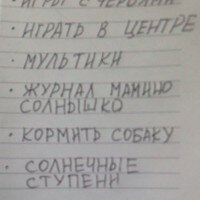 · ИГРЫ С ЧЕРВЯМИ
· ИГРАТЬ В ЦЕНТРЕ
· МУЛЬТИКИ
· ЖУРНАЛ МАМИНО
СОЛНЫШКО
· КОРМИТЬ СОБАКУ
· СОЛНЕЧНЫЕ
СТУПЕНИ